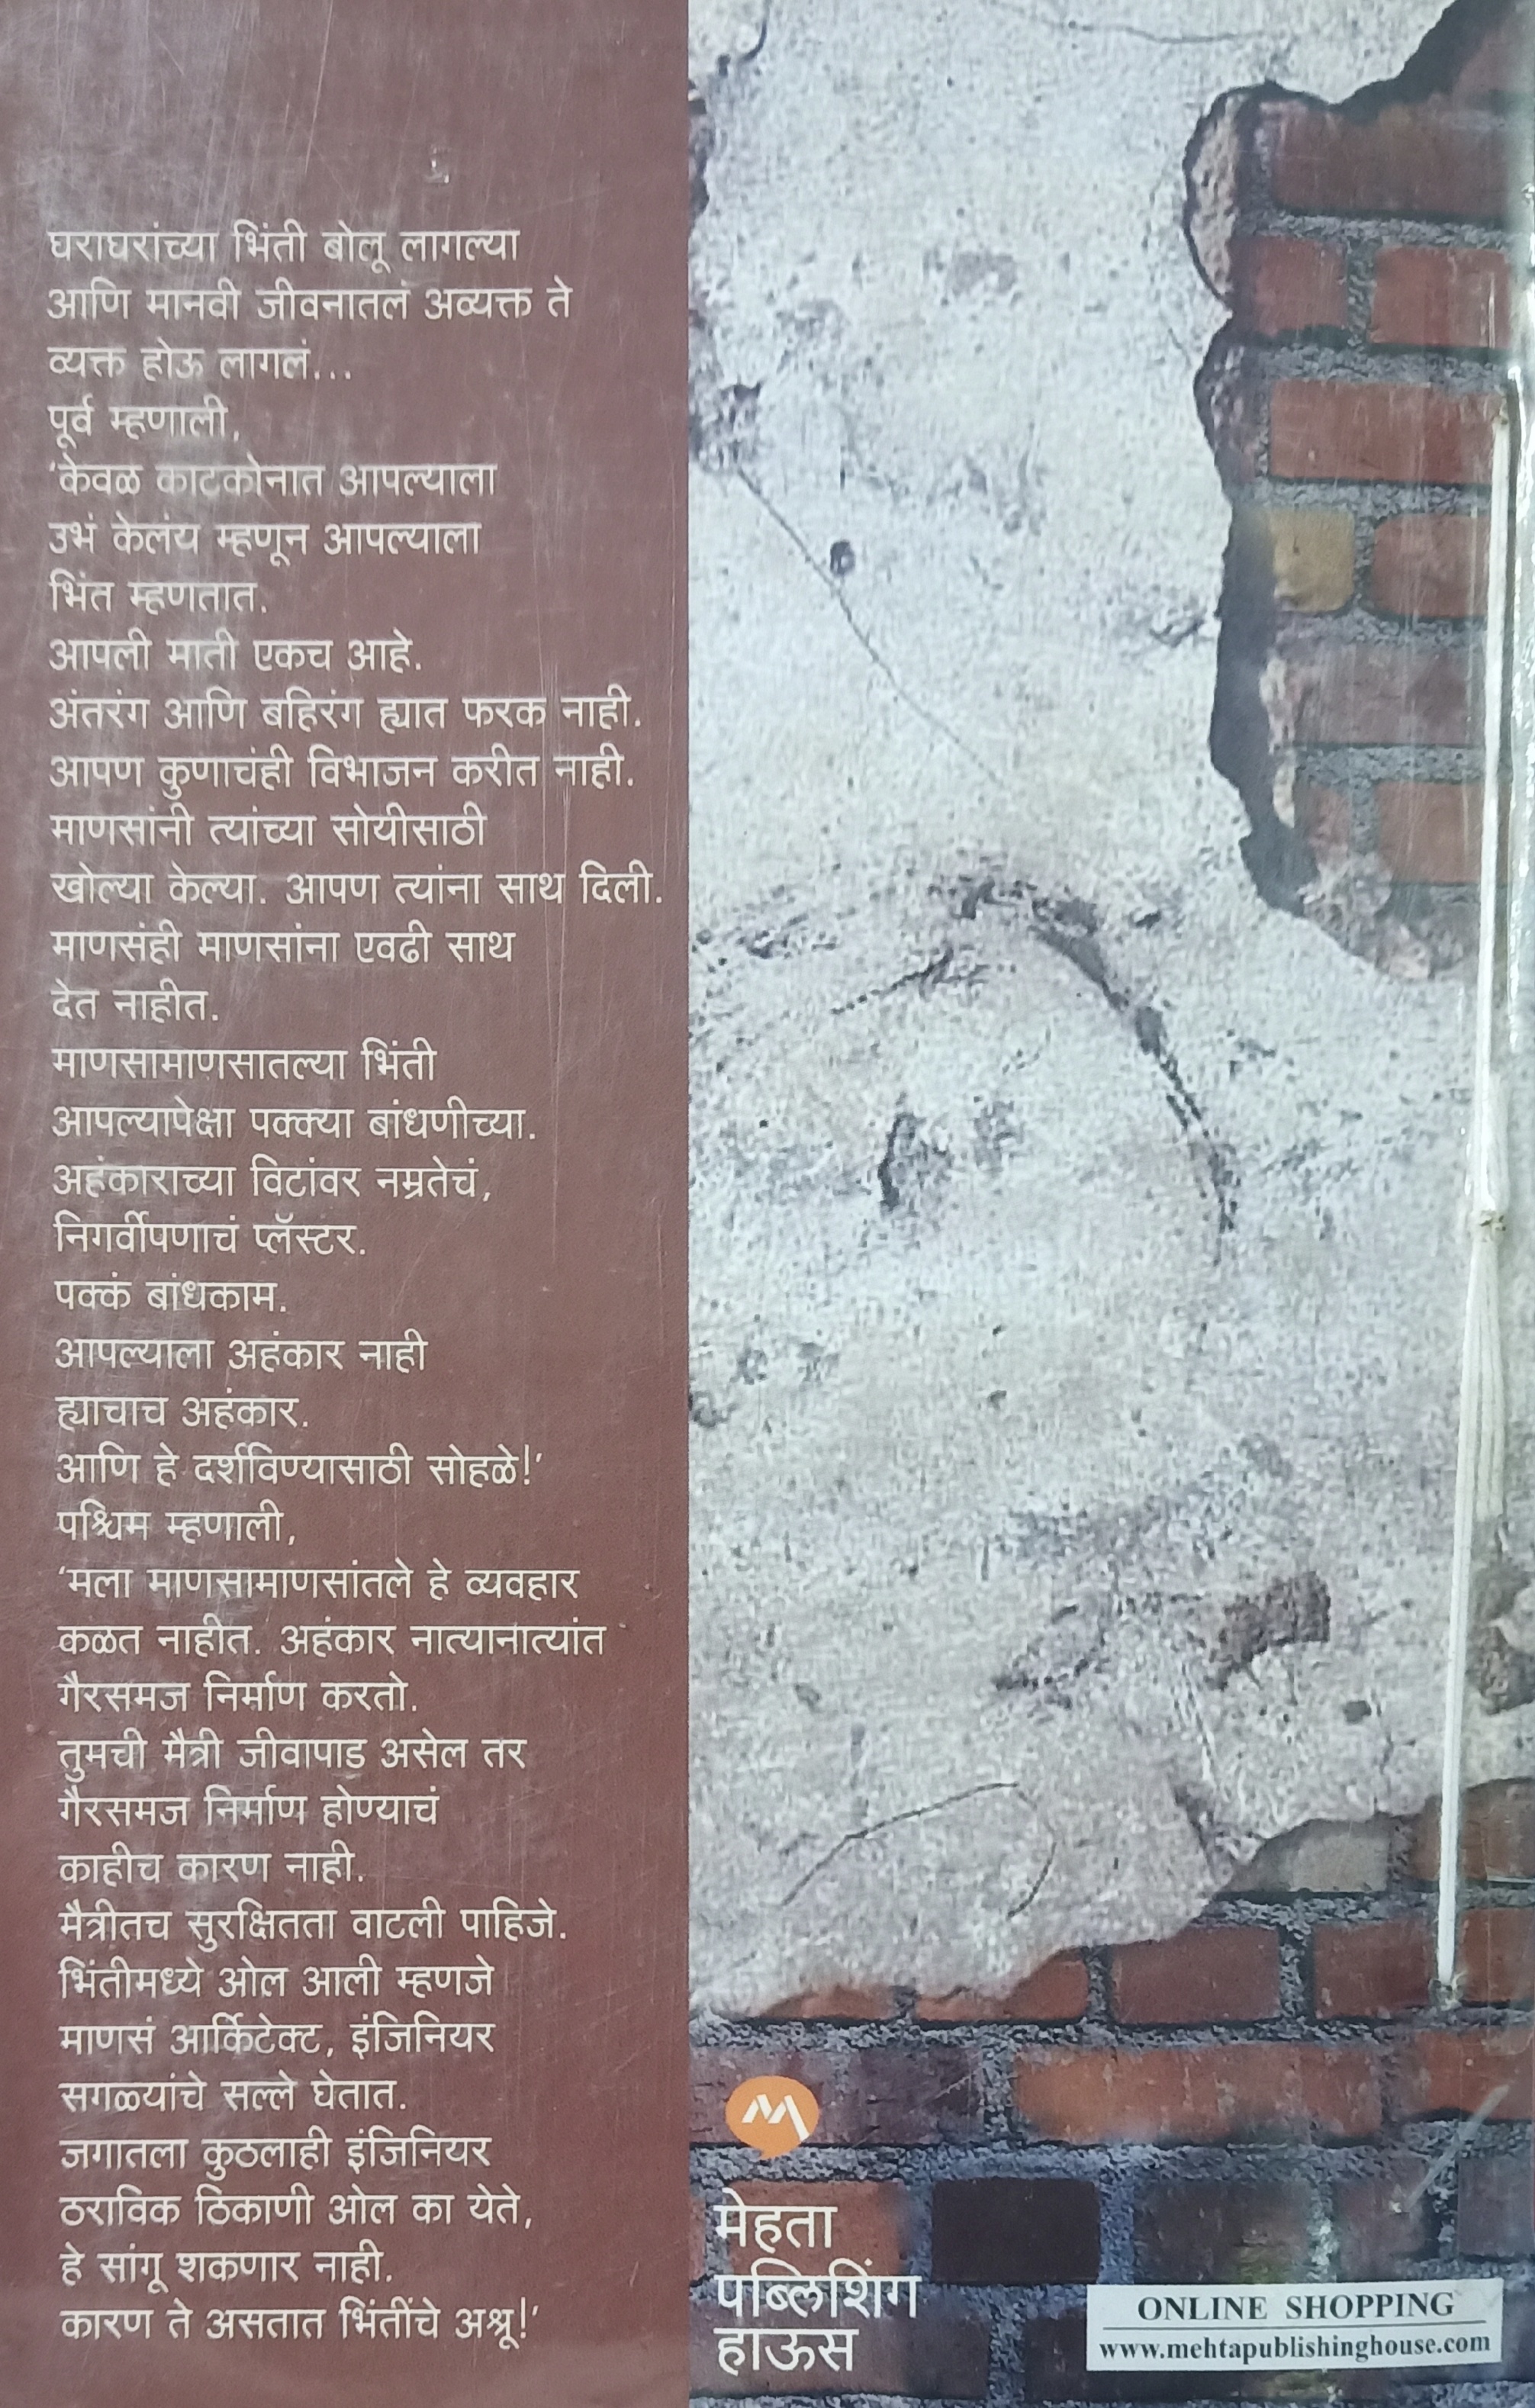 घराघरांच्या भिंती बोलू लागल्या
आणि मानवी जीवनातलं अव्यक्त ते
व्यक्त होऊ लागलं...
पूर्व म्हणाली,
'केवळ काटकोनात आपल्याला
उभं केलंय म्हणून आपल्याला
भिंत म्हणतात.
आपली माती एकच आहे.
अंतरंग आणि बहिरंग ह्यात फरक नाही.
आपण कुणाचंही विभाजन करीत नाही.
माणसांनी त्यांच्या सोयीसाठी
खोल्या केल्या. आपण त्यांना साथ दिली.
माणसंही माणसांना एवढी साथ
देत नाहीत.
माणसामाणसातल्या भिंती
आपल्यापेक्षा पक्क्या बांधणीच्या.
अहंकाराच्या विटांवर नम्रतेचं,
निगर्वीपणाचं प्लॅस्टर.
पक्कं बांधकाम.
आपल्याला अहंकार नाही
ह्याचाच अहंकार.
आणि हे दर्शविण्यासाठी सोहळे!'
पश्चिम म्हणाली,
'मला माणसामाणसांतले हे व्यवहार
कळत नाहीत. अहंकार नात्यानात्यांत
गैरसमज निर्माण करतो.
तुमची मैत्री जीवापाड असेल तर
गैरसमज निर्माण होण्याचं
काहीच कारण नाही.
मैत्रीतच सुरक्षितता वाटली पाहिजे.
भिंतीमध्ये ओल आली म्हणजे
माणसं आर्किटेक्ट, इंजिनियर
सगळ्यांचे सल्ले घेतात.
जगातला कुठलाही इंजिनियर
ठराविक ठिकाणी ओल का येते,
हे सांगू शकणार नाही.
कारण ते असतात भिंतींचे अश्रू!'
मेहता
पब्लिशिंग
हाऊस
ONLINE SHOPPING
www.mehtapublishinghouse.com